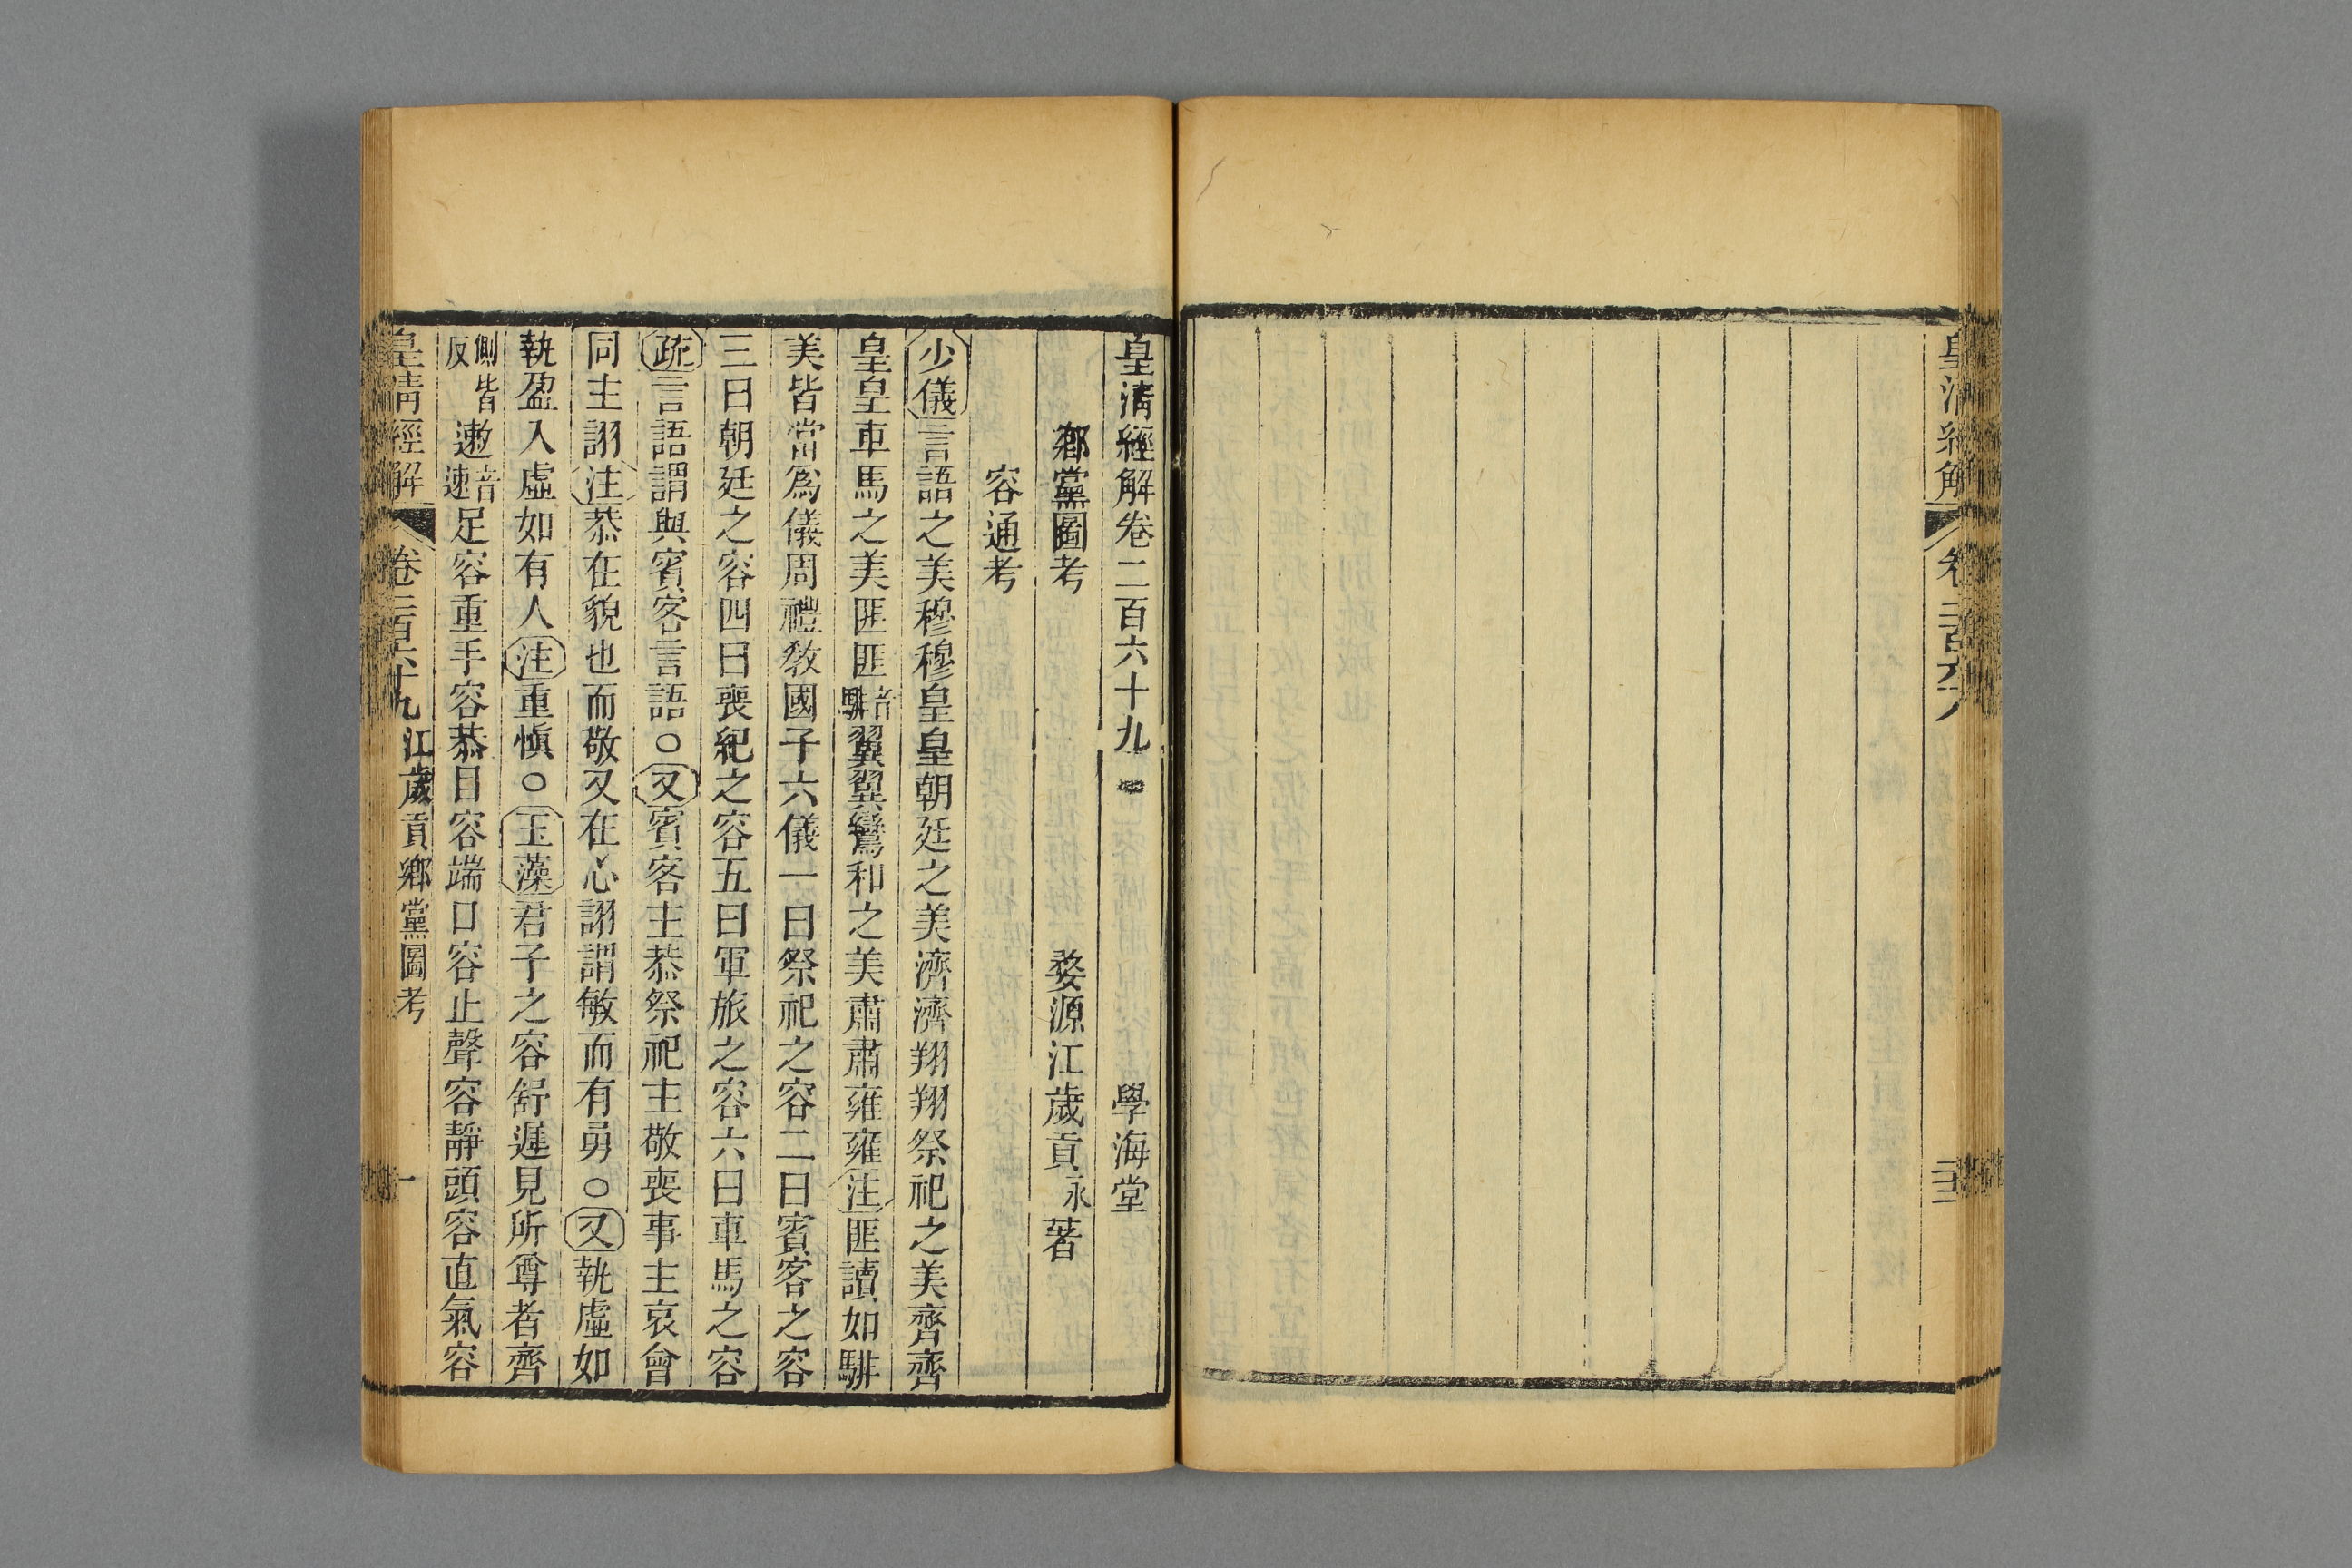 皇清經解
卷二百六十八
皇清經解卷二百六十九 學海堂
鄉黨圖考 婺源江歲貢永著
容通考
少儀言語之美穆穆皇皇朝廷之美濟濟翔翔祭祀之美齊齊
皇皇車馬之美匪匪音騑翼翼鸞和之美肅肅雍雍注匪讀如騑
美皆當爲儀周禮敎國子六儀一曰祭祀之容二曰賓客之容
三曰朝廷之容四曰喪紀之容五曰軍旅之容六曰車馬之容
疏言語謂與賓客言語○又賓客主恭祭祀主敬喪事主哀會
同主詡注恭在貌也而敬又在心詡謂敏而有勇○又執虛如
執盈入虛如有人注重愼○玉藻君子之容舒遲見所尊者齊
側皆反遬音速足容重手容恭目容端口容止聲容靜頭容直氣容
皇清經解 卷二百六十九 江歲貢鄉黨圖考 一